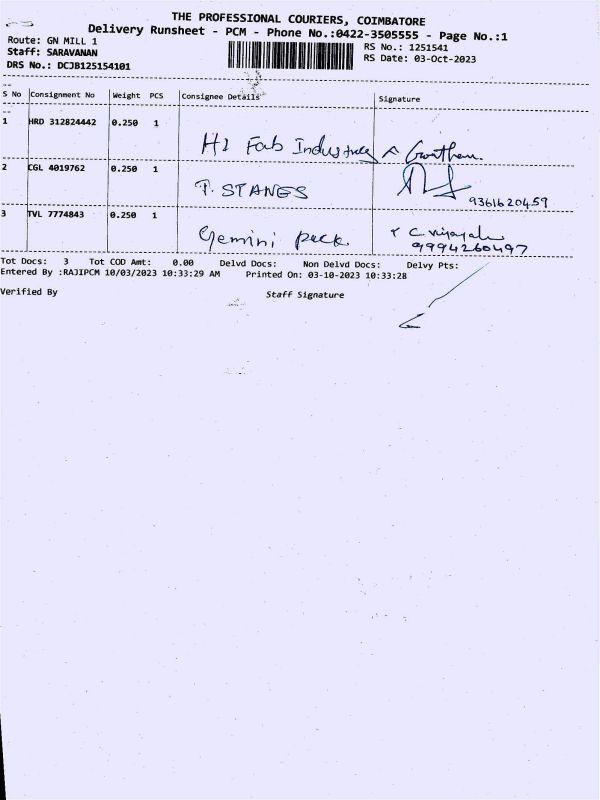 THE PROFESSIONAL COURIERS, COIMBATORE
Delivery Runsheet - PCM - Phone No.:0422-3505555 - Page No.:1
Route: GN MILL 1
RS No.: 1251541
Staff: SARAVANAN
RS Date: 03-Oct-2023
DRS No.: DCJB125154101
S No Consignment No Weight PCS Consignee Details Signature
1 HRD 312824442 0.250 1
HI Fab Industries
2 CGL 4019762 0.250 1
T. STANES
9361620459
3 TVL 7774843 0.250 1
Gemini Pack
9994260497
Tot Docs: 3 Tot COD Amt: 0.00 Delvd Docs: Non Delvd Docs: Delvy Pts:
Entered By :RAJIPCM 10/03/2023 10:33:29 AM Printed On: 03-10-2023 10:33:28
Verified By Staff Signature